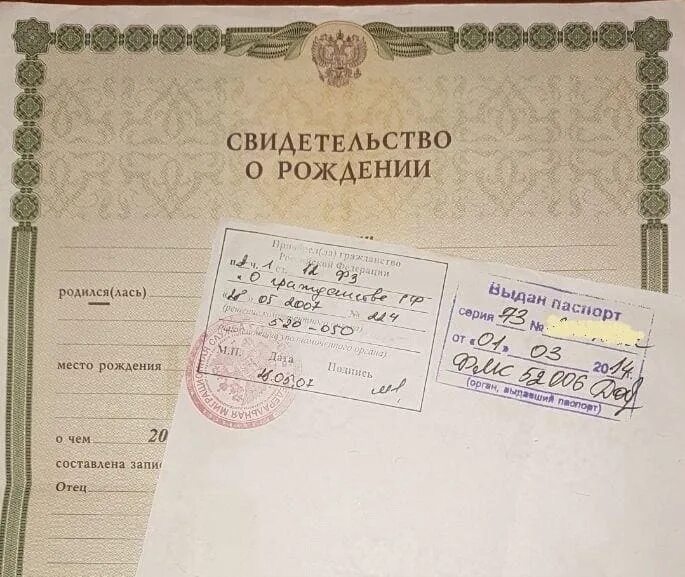 СВИДЕТЕЛЬСТВО
О РОЖДЕНИИ
родился(лась)
место рождения
о чем 20
составлена запи
Отец
Приобрел(ла) гражданство
Российской Федерации
ч. 1 ст. 12 ФЗ
"О гражданстве РФ
"28" 05 2007 № 224
520-050
М.П. Дата Подпись
28.05.07
Выдан паспорт
серия 73 №
от «01» 03 2014
ФМС 52006
(орган, выдавший паспорт)